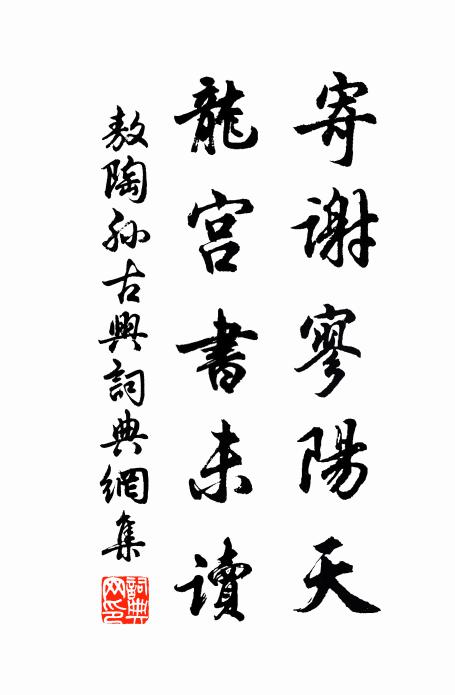 寄謝寥陽天
龍宮書未讀
敖陶孫古典詞典網集
詞典網印